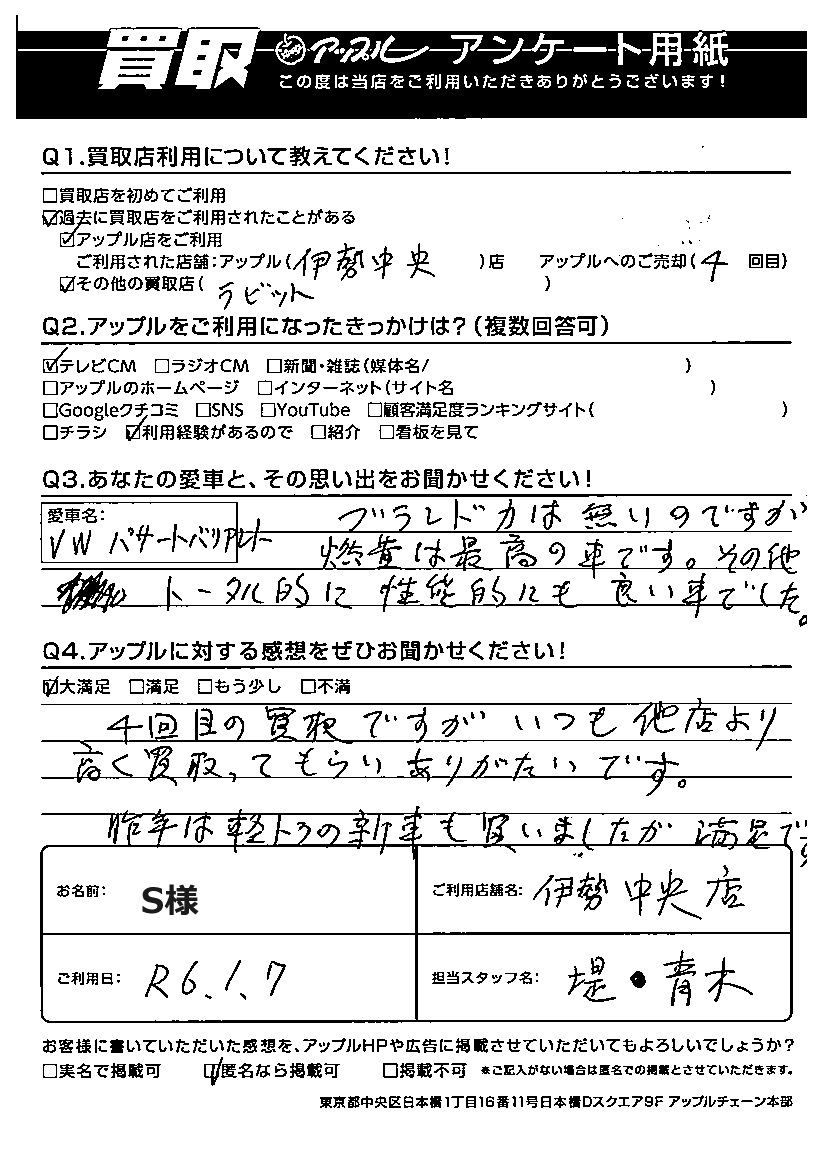 買取 アップル アンケート用紙
この度は当店をご利用いただきありがとうございます!
Q1.買取店利用について教えてください!
□買取店を初めてご利用
☑過去に買取店をご利用されたことがある
☑アップル店をご利用
ご利用された店舗:アップル(伊勢中央)店 アップルへのご売却(4 回目)
☑その他の買取店(ラビット)
Q2.アップルをご利用になったきっかけは?(複数回答可)
☑テレビCM □ラジオCM □新聞・雑誌(媒体名/ )
□アップルのホームページ □インターネット(サイト名 )
□Googleクチコミ □SNS □YouTube □顧客満足度ランキングサイト( )
□チラシ ☑利用経験があるので □紹介 □看板を見て
Q3.あなたの愛車と、その思い出をお聞かせください!
愛車名:
VW パサートバリアント
ブランド力は無いのですが
燃費は最高の車です。その他
トータル的に性能的にも良い車でした。
Q4.アップルに対する感想をぜひお聞かせください!
☑大満足 □満足 □もう少し □不満
4回目の買取ですがいつも他店より
高く買取ってもらいありがたいです。
昨年は軽トラの新車も買いましたが満足です
お名前: S様 ご利用店舗名: 伊勢中央店
ご利用日: R6.1.7 担当スタッフ名: 堤・青木
お客様に書いていただいた感想を、アップルHPや広告に掲載させていただいてもよろしいでしょうか?
□実名で掲載可 ☑匿名なら掲載可 □掲載不可 ※ご記入がない場合は匿名での掲載とさせていただきます。
東京都中央区日本橋1丁目16番11号日本橋Dスクエア9F アップルチェーン本部